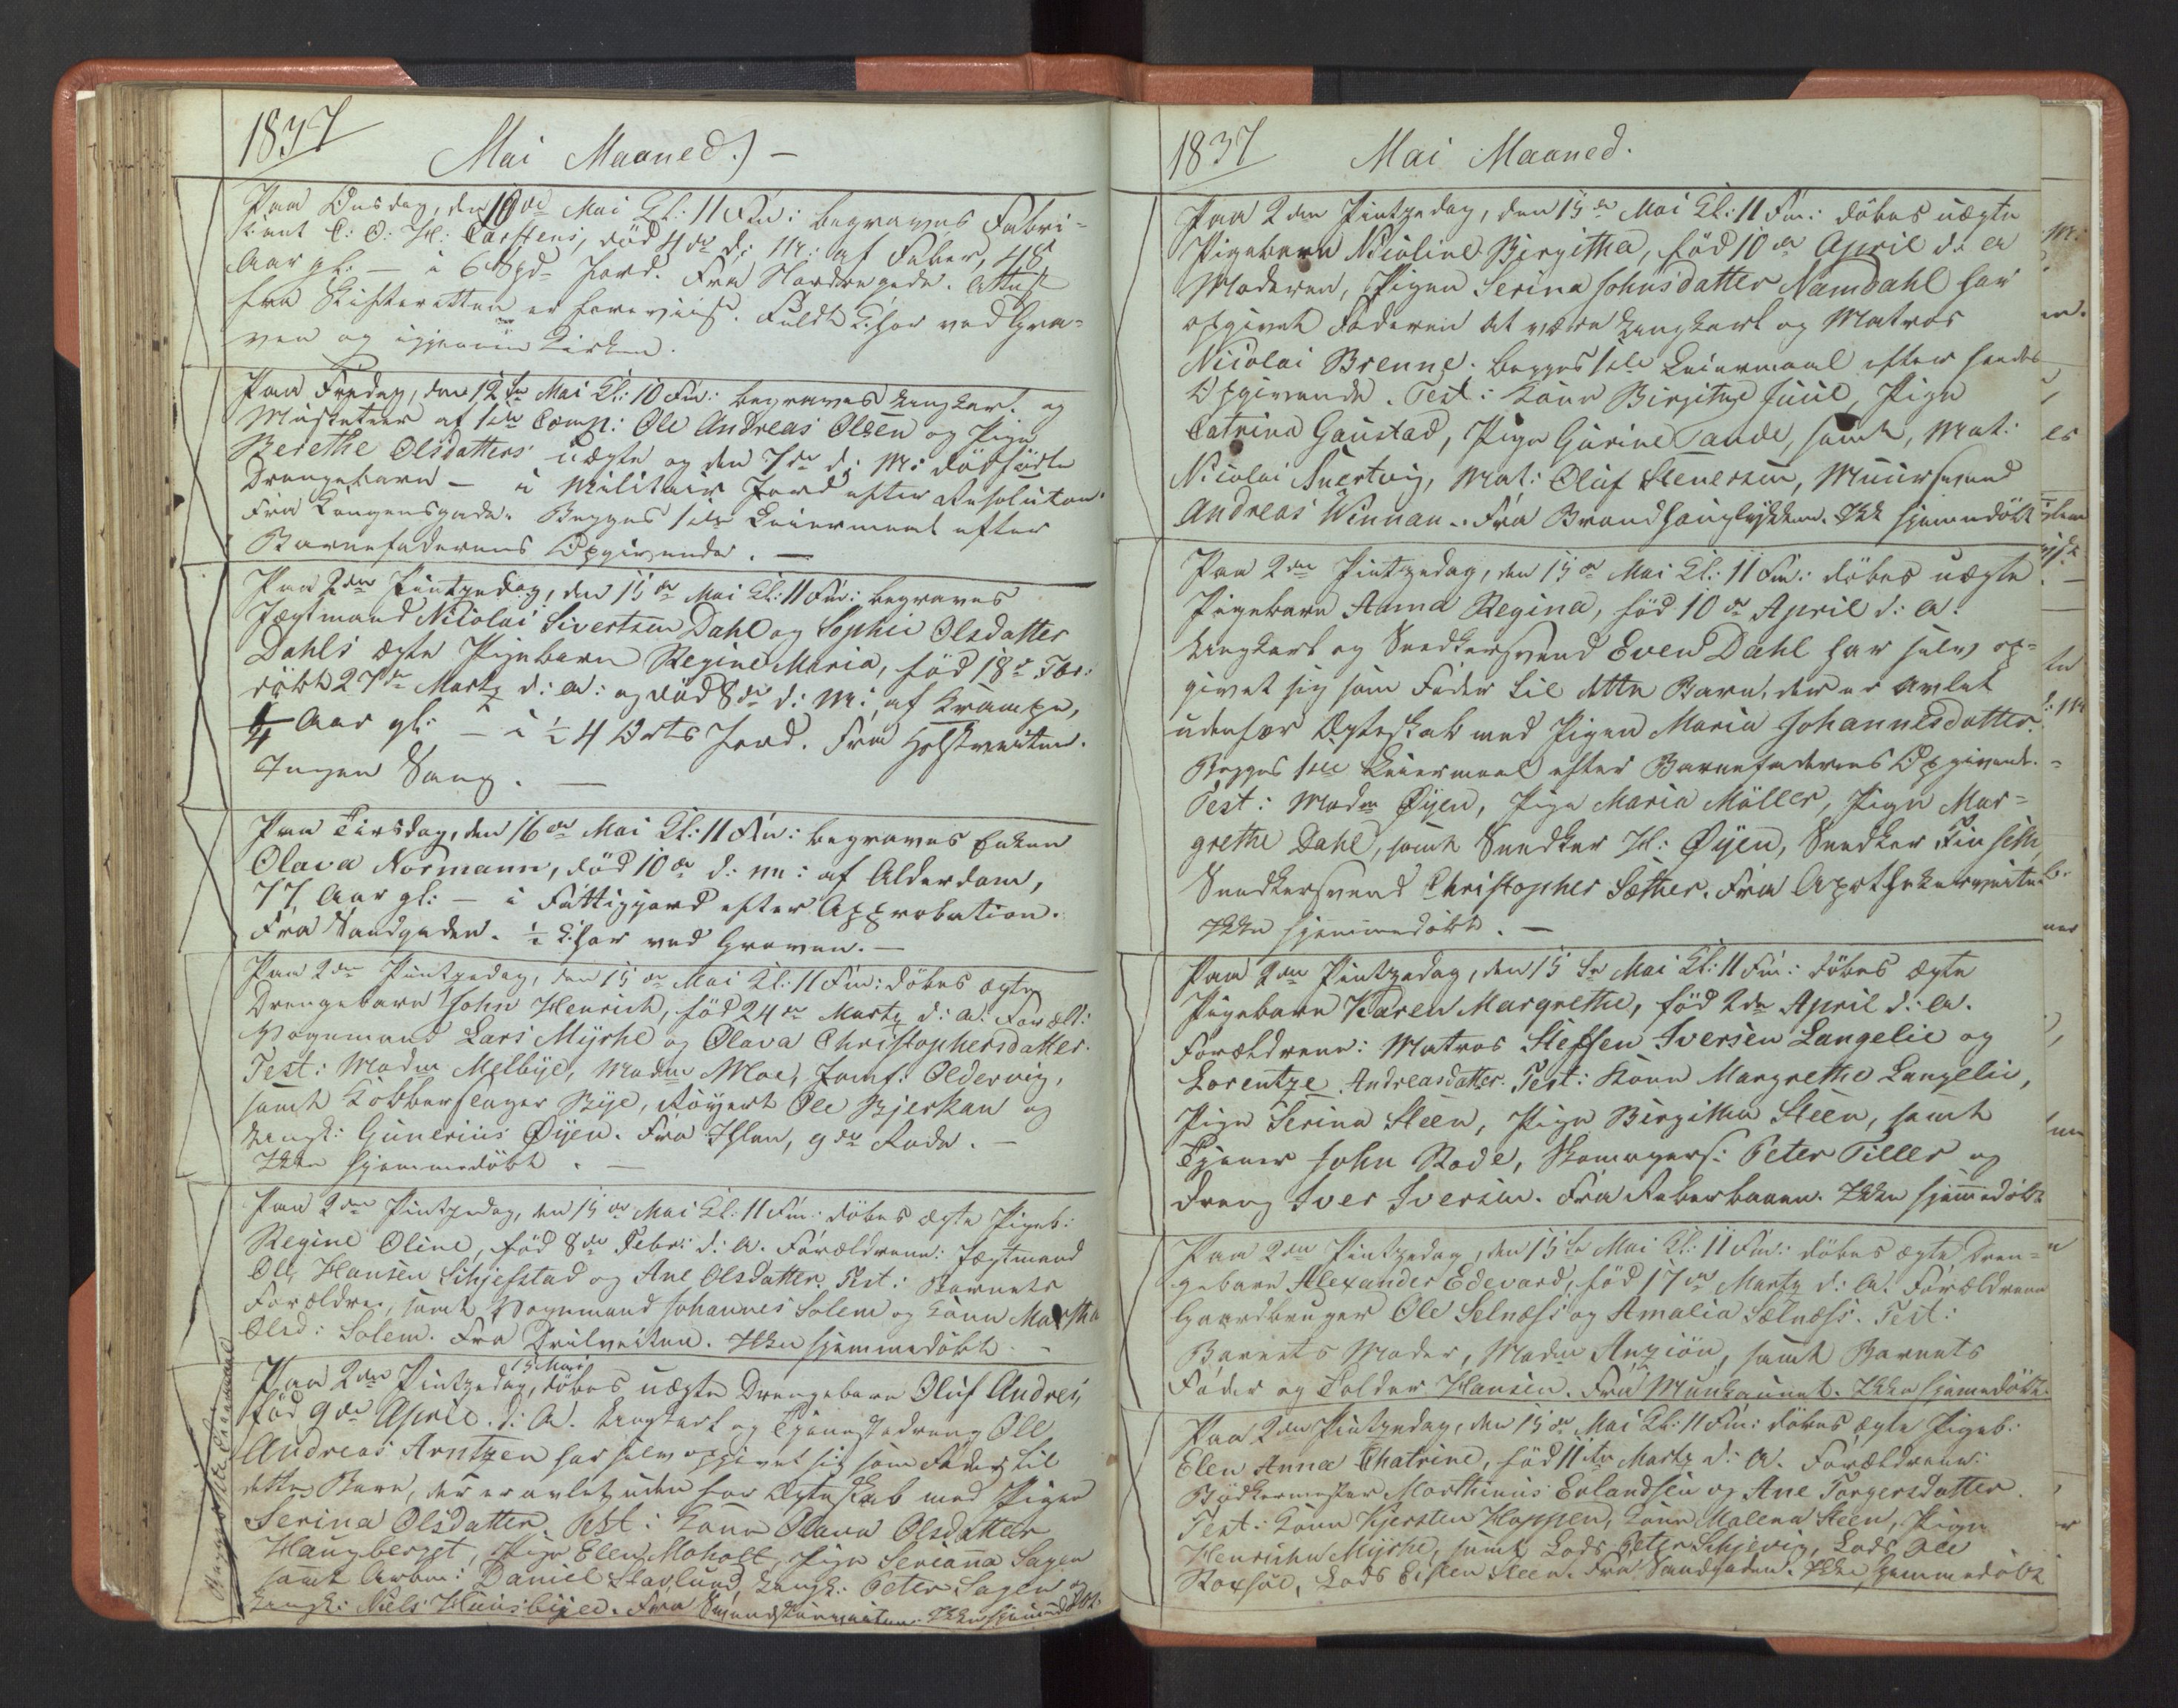 1837
Mai Maaned.) -
Paa Onsdag, den 10de Mai Kl: 11 Fm: begraves Fabri-
kant C: O: H: Carstens, död 4de d: M: af Feber, 48
Aar gl: - i 6 Spd Jord. Fra Nordregade. Attest
fra Skifteretten er foreviist. Fuldt Chor ved Gra-
ven og igjennem Kirken.
Paa Fredag, den 12te Mai Kl: 10 Fm: begraves Ungkarl og
Musketeer af 1ste Comp: Ole Andreas Olsen og Pige
Berethe Olsdatters uægte og den 7de d: M: dödfödte
Drengebarn - i Militair Jord efter Resolution.
Fra Kongensgade. Begges 1ste Leiermaal efter
Barnefaderens Opgivende. -
Paa 2den Pintzedag, den 15de Mai Kl: 11 Fm: begraves
Jægtmand Nicolai Sivertsen Dahl og Sophie Olsdatter
Dahls ægte Pigebarn Regine Maria, föd 18de Febr:
döbt 27de Martz d: A: og död 8de d: M: af Krampe,
1/4 Aar gl: - i 1/2 4 Orts Jord. Fra Holstveiten.
Ingen Sang. -
Paa Tirsdag, den 16de Mai Kl: 11 Fm: begraves Enken
Olava Normann, död 10de d: m: af Alderdom,
77 Aar gl: - i Fattigjord efter Approbation.
Fra Sandgaden. 1/2 Chor ved Graven. -
Paa 2den Pintzedag, den 15de Mai Kl: 11 Fm: döbes ægte
Drengebarn John Henrich, föd 24de Martz d: A: Foræld:
Vognmand Lars Myrhe og Olava Christophersdatter.
Test: Madm Melbye, Madm Moe, Jomf: Oldervig,
samt Kobberslager Bye, Röyert Ole Bjerkan og
Ungk: Gunerius Øyen. Fra Ihlen, 9de Rode. -
Ikke hjemmedöbt. -
Paa 2den Pintzedag, den 15de Mai Kl: 11 Fm: döbes ægte Pigeb:
Regine Oline, föd 8de Febr: d: A. Forældrene: Jægtmand
Ole Hansen Schjefstad og Ane Olsdatter. Test: Barnets
Forældre, samt Vognmand Johannes Solem og Kone Martha
Olsd: Solem. Fra Prilveiten. Ikke hjemmedöbt. -
Begges 1ste Leiermaal
15 Mai
Paa 2den Pintzedag, döbes uægte Drengebarn Oluf Andreas,
föd 9de April d: A. Ungkarl og Tjenestedreng Ole
Andreas Arntzen har selv opgivet sig som Fader til
dette Barn, der er avlet uden for Ægteskab med Pigen
Serina Olsdatter. Test: Kone Olava Olsdatter
Haugberget, Pige Elen Moholt, Pige Serianna Sagen
samt Arbm: Daniel Stavlund, Ungk: Peter Sagen og
Ungk: Niels Huusbyed. Fra Ikke hjemmedöbt.
1837
Mai Maaned.
Paa 2den Pintzedag, den 15de Mai Kl: 11 Fm: döbes uægte
Pigebarn Nicoline Birgitha, föd 10de April d: A
Moderen, Pigen Serina Johnsdatter Namdahl har
opgivet Faderen at være Ungkarl og Matros
Nicolai Brenne. Begges 1ste Leiermaal efter hendes
Opgivende. Test: Kone Birgitte Juul, Pige
Catrina Gaustad, Pige Gurine Tande, samt, Mat:
Nicolai Suertvig, Mat: Oluf Stenersen, Muursvend
Andreas Winnan. Fra Brandhauglykken. Ikke hjemmedöbt
Paa 2den Pintzedag, den 15de Mai Kl: 11 Fm: döbes uægte
Pigebarn Anna Regina, föd 10de April d: A:
Ungkarl og Snedkersvend Even Dahl har selv op-
givet sig som Fader til dette Barn, der er avlet
udenfor Ægteskab med Pigen Maria Johannesdatter.
Begges 1ste Leiermaal efter Barnefaderens Opgivende. -
Test: Madm Øyen, Pige Maria Möller, Pige Mar-
grethe Dahl, samt Snedker H: Øyen, Snedker Finseth
Snedkersvend Christopher Sæther. Fra Apothekerveiten
Ikke hjemmedöbt. -
Paa 2den Pintzedag, den 15de Mai Kl: 11 Fm: döbes ægte
Pigebarn Karen Margrethe, föd 2den April d: A.
Forældrene: Matros Steffen Iversen Langelie og
Lorentze Andreasdatter. Test: Kone Margrethe Langelie,
Pige Serina Steen, Pige Birgitha Steen, samt
Tjener John Rode, Skomagers: Peter Piller og
Dreng Iver Iversen. Fra Reberbanen. Ikke hjemmedöbt
Paa 2den Pintzedag, den 15de Mai Kl: 11 Fm: döbes ægte Dren-
gebarn Alexander Edevard, föd 17de Martz d: A. Forældrene
Gaardbruger Ole Selnæss og Amalia Selnæss. Test:
Barnets Moder, Madm Anziön, samt Barnets
Fader og Tolder Hansen. Fra Munkaunet. Ikke hjemmedöbt.
Paa 2den Pintzedag, den 15de Mai Kl: 11 Fm: döbes ægte Pigeb:
Elen Anna Chatrine, föd 11te Martz d: A. Forældrene:
Bödkermester Marthinus Erlandsen og Ane Torgersdatter.
Test: Kone Kjersten Hoppen, Kone Malena Steen, Pige
Henrichte Myrhe, samt Lods Peter Schjevig, Lods Ole
Roxsöe, Lods Eisten Steen. Fra Sandgaden. Ikke hjemmedöbt